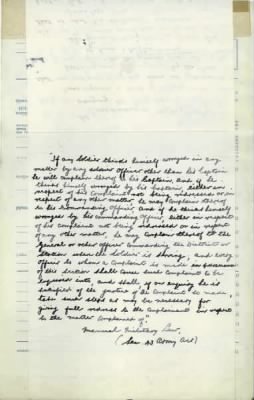 "If any soldier thinks himself wronged in any
matter by any officer other than his Captain
he may complain thereof to his Captain, and if he
thinks himself wronged by his Captain, either in
respect of his complaint not being redressed or in
respect of any other matter, he may complain thereof
to his Commanding Officer, and if he thinks himself
wronged by his Commanding Officer, either in respect
of his complaint not being redressed or in respect
of any other matter, he may complain thereof to the
General or other officer Commanding the District or
Station where the soldier is serving, and every
officer to whom a complaint is made in pursuance
of this section shall cause such complaint to be
inquired into, and shall, if on inquiry he is
satisfied of the justice of the complaint so made,
take such steps as may be necessary for
giving full redress to the complainant in respect
to the matter complained of."
Manual Military Law.
(Sec. 43 Army Act)